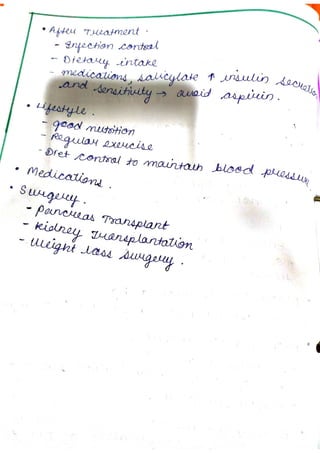 • After Treatment.
- Infection control
- Dietary intake
- medications, salicylate ↑ insulin secretion
and sensitivity → avoid aspirin.
• Lifestyle.
- good nutrition
- Regular exercise
- Diet control to maintain blood pressure
• Medications.
• Surgery.
- Pancreas Transplant
- Kidney Transplantation
- Weight loss surgery.